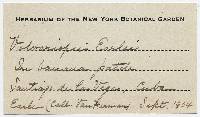 HERBARIUM OF THE NEW YORK BOTANICAL GARDEN
Volvariopsis Earlei
On banana patch
Santiago de las Vegas, Cuba
Earle (Coll. Van Herman) Sept. 1904